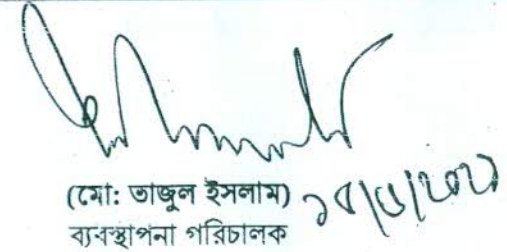 (মো: তাজুল ইসলাম)
ব্যবস্থাপনা পরিচালক